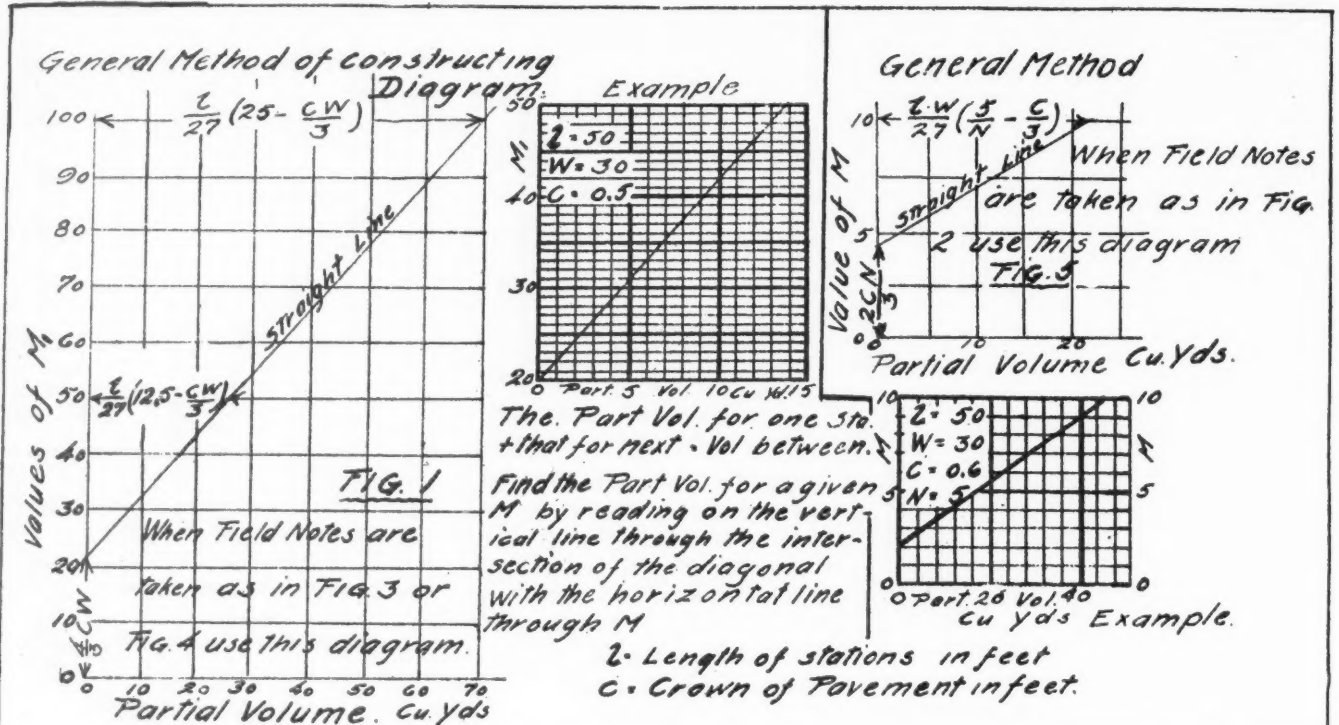 General Method of constructing
Diagram.
l/27 (25 - CW/3)
100
90
80
70
60
50
40
30
20
10
0
Values of M₁
Straight Line
l/27 (12.5 - CW/3)
FIG. 1
When Field Notes are
taken as in FIG. 3 or
FIG. 4 use this diagram.
0 10 20 30 40 50 60 70
Partial Volume. Cu. Yds
Example
50
40
30
20
M₁
l = 50
W = 30
C = 0.5
0 Part. 5 Vol. 10 Cu Yd. 15
The. Part Vol. for one sta.
+ that for next = Vol between.
Find the Part Vol. for a given
M by reading on the vert-
ical line through the inter-
section of the diagonal
with the horizontal line
through M
General Method
l·W/27 (5/N - C/3)
10
5
0
Value of M
2CN/3
Straight Line
When Field Notes
are taken as in FIG.
2 use this diagram
FIG. 5
0 10 20
Partial Volume Cu. Yds.
10
5
0
M
l = 50
W = 30
C = 0.6
N = 5
10
5
0
M
0 Part. 20 Vol. 40
Cu Yds Example.
l = Length of stations in feet
C = Crown of Pavement in feet.